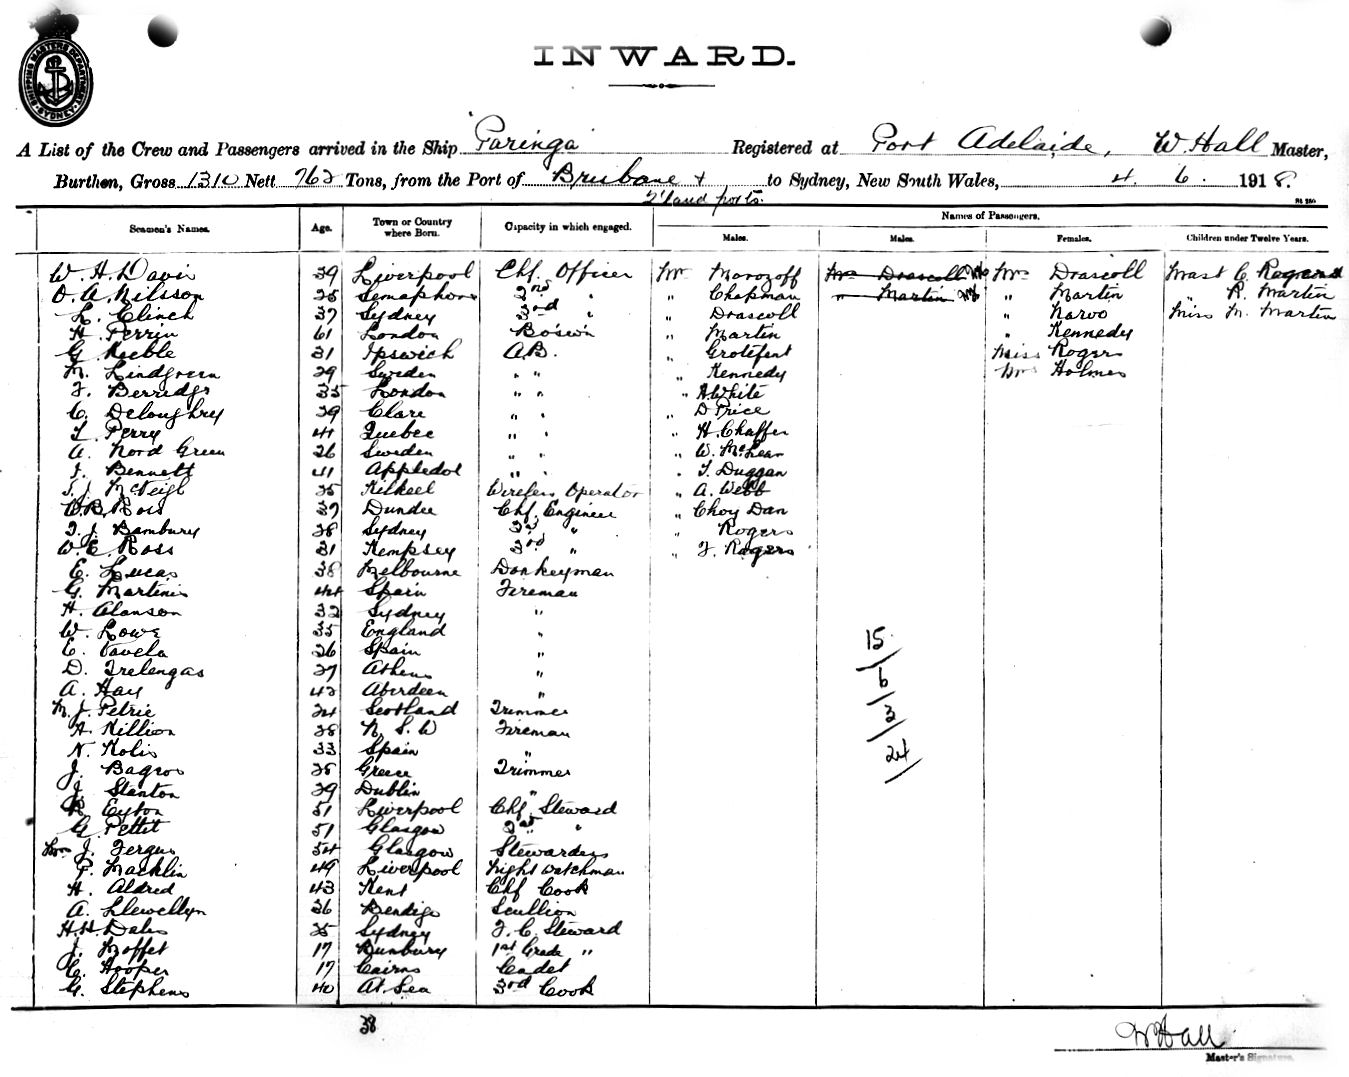 SHIPPING MASTERS DEPARTMENT SYDNEY
INWARD.
A List of the Crew and Passengers arrived in the Ship "Paringa" Registered at Port Adelaide, W. Hall Master,
Burthen, Gross 1310 Nett 762 Tons, from the Port of Brisbane + to Sydney, New South Wales, 4. 6. 1918.
I'land ports.
Names of Passengers.
Seamen's Names. Age. Town or Country where Born. Capacity in which engaged. Males. Males. Females. Children under Twelve Years.
W. H. Davis 39 Liverpool Chf. Officer Mr Morozoff Mrs Drascoll Mrs Drascoll Mast C. Rogers
O. A. Nilsson 25 Semaphore 2nd " " Chapman " Martin " Martin " R. Martin
L. Clinch 37 Sydney 3rd " " Drascoll " Narvo Miss M. Martin
H. Perrin 61 London Bos'n " Martin " Kennedy
G. Keeble 31 Ipswich A.B. " Grotefent Miss Rogers
M. Lindgreen 29 Sweden " " " Kennedy Mrs Holmes
F. Berridge 35 London " " " A White
C. Deloughrey 29 Clare " " " D Price
T. Perry 41 Quebec " " " H. Chaffer
A. Nord Green 26 Sweden " " " W. McLean
J. Bennett 41 Appledol " " " T. Duggan
T. J. McVeigh 25 Kilkeel Wireless Operator " A. Webb
W. B. Ross 39 Dundee Chf. Engineer " Choy Dan
T. J. Bambury 28 Sydney 2nd " " Rogers
W. E. Ross 31 Kempsey 3rd " " F. Rogers
E. Lucas 38 Melbourne Donkeyman
G. Martinis 44 Spain Fireman
H. Alanson 32 Sydney "
W. Lowe 35 England "
E. Vavela 26 Spain "
D. Trelengas 27 Athens "
A. Hay 42 Aberdeen "
M. J. Petrie 24 Scotland Trimmer
A. Killion 28 N. S. W Fireman
N. Kolis 33 Spain "
J. Bagros 25 Greece Trimmer
J. Stanton 29 Dublin "
R. Eyton 51 Liverpool Chf. Steward
G. Pettit 51 Glasgow 2nd "
Mrs J. Fergus 54 Glasgow Stewardess
P. Macklin 49 Liverpool Night watchman
H. Aldred 43 Kent Chf Cook
A. Llewellyn 36 Bendigo Scullion
H. H. Dales 25 Sydney F. C. Steward
J. Moffet 17 Bunbury 1st Grade "
C. Hooper 17 Cairns Cadet
G. Stephens 40 At Sea 3rd Cook
15/
6/
3/
24/
38
W Hall
Master's Signature.